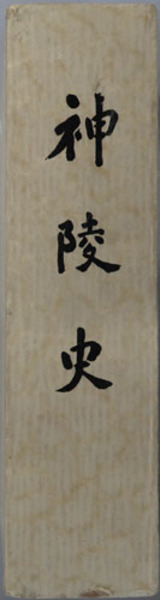 神陵史